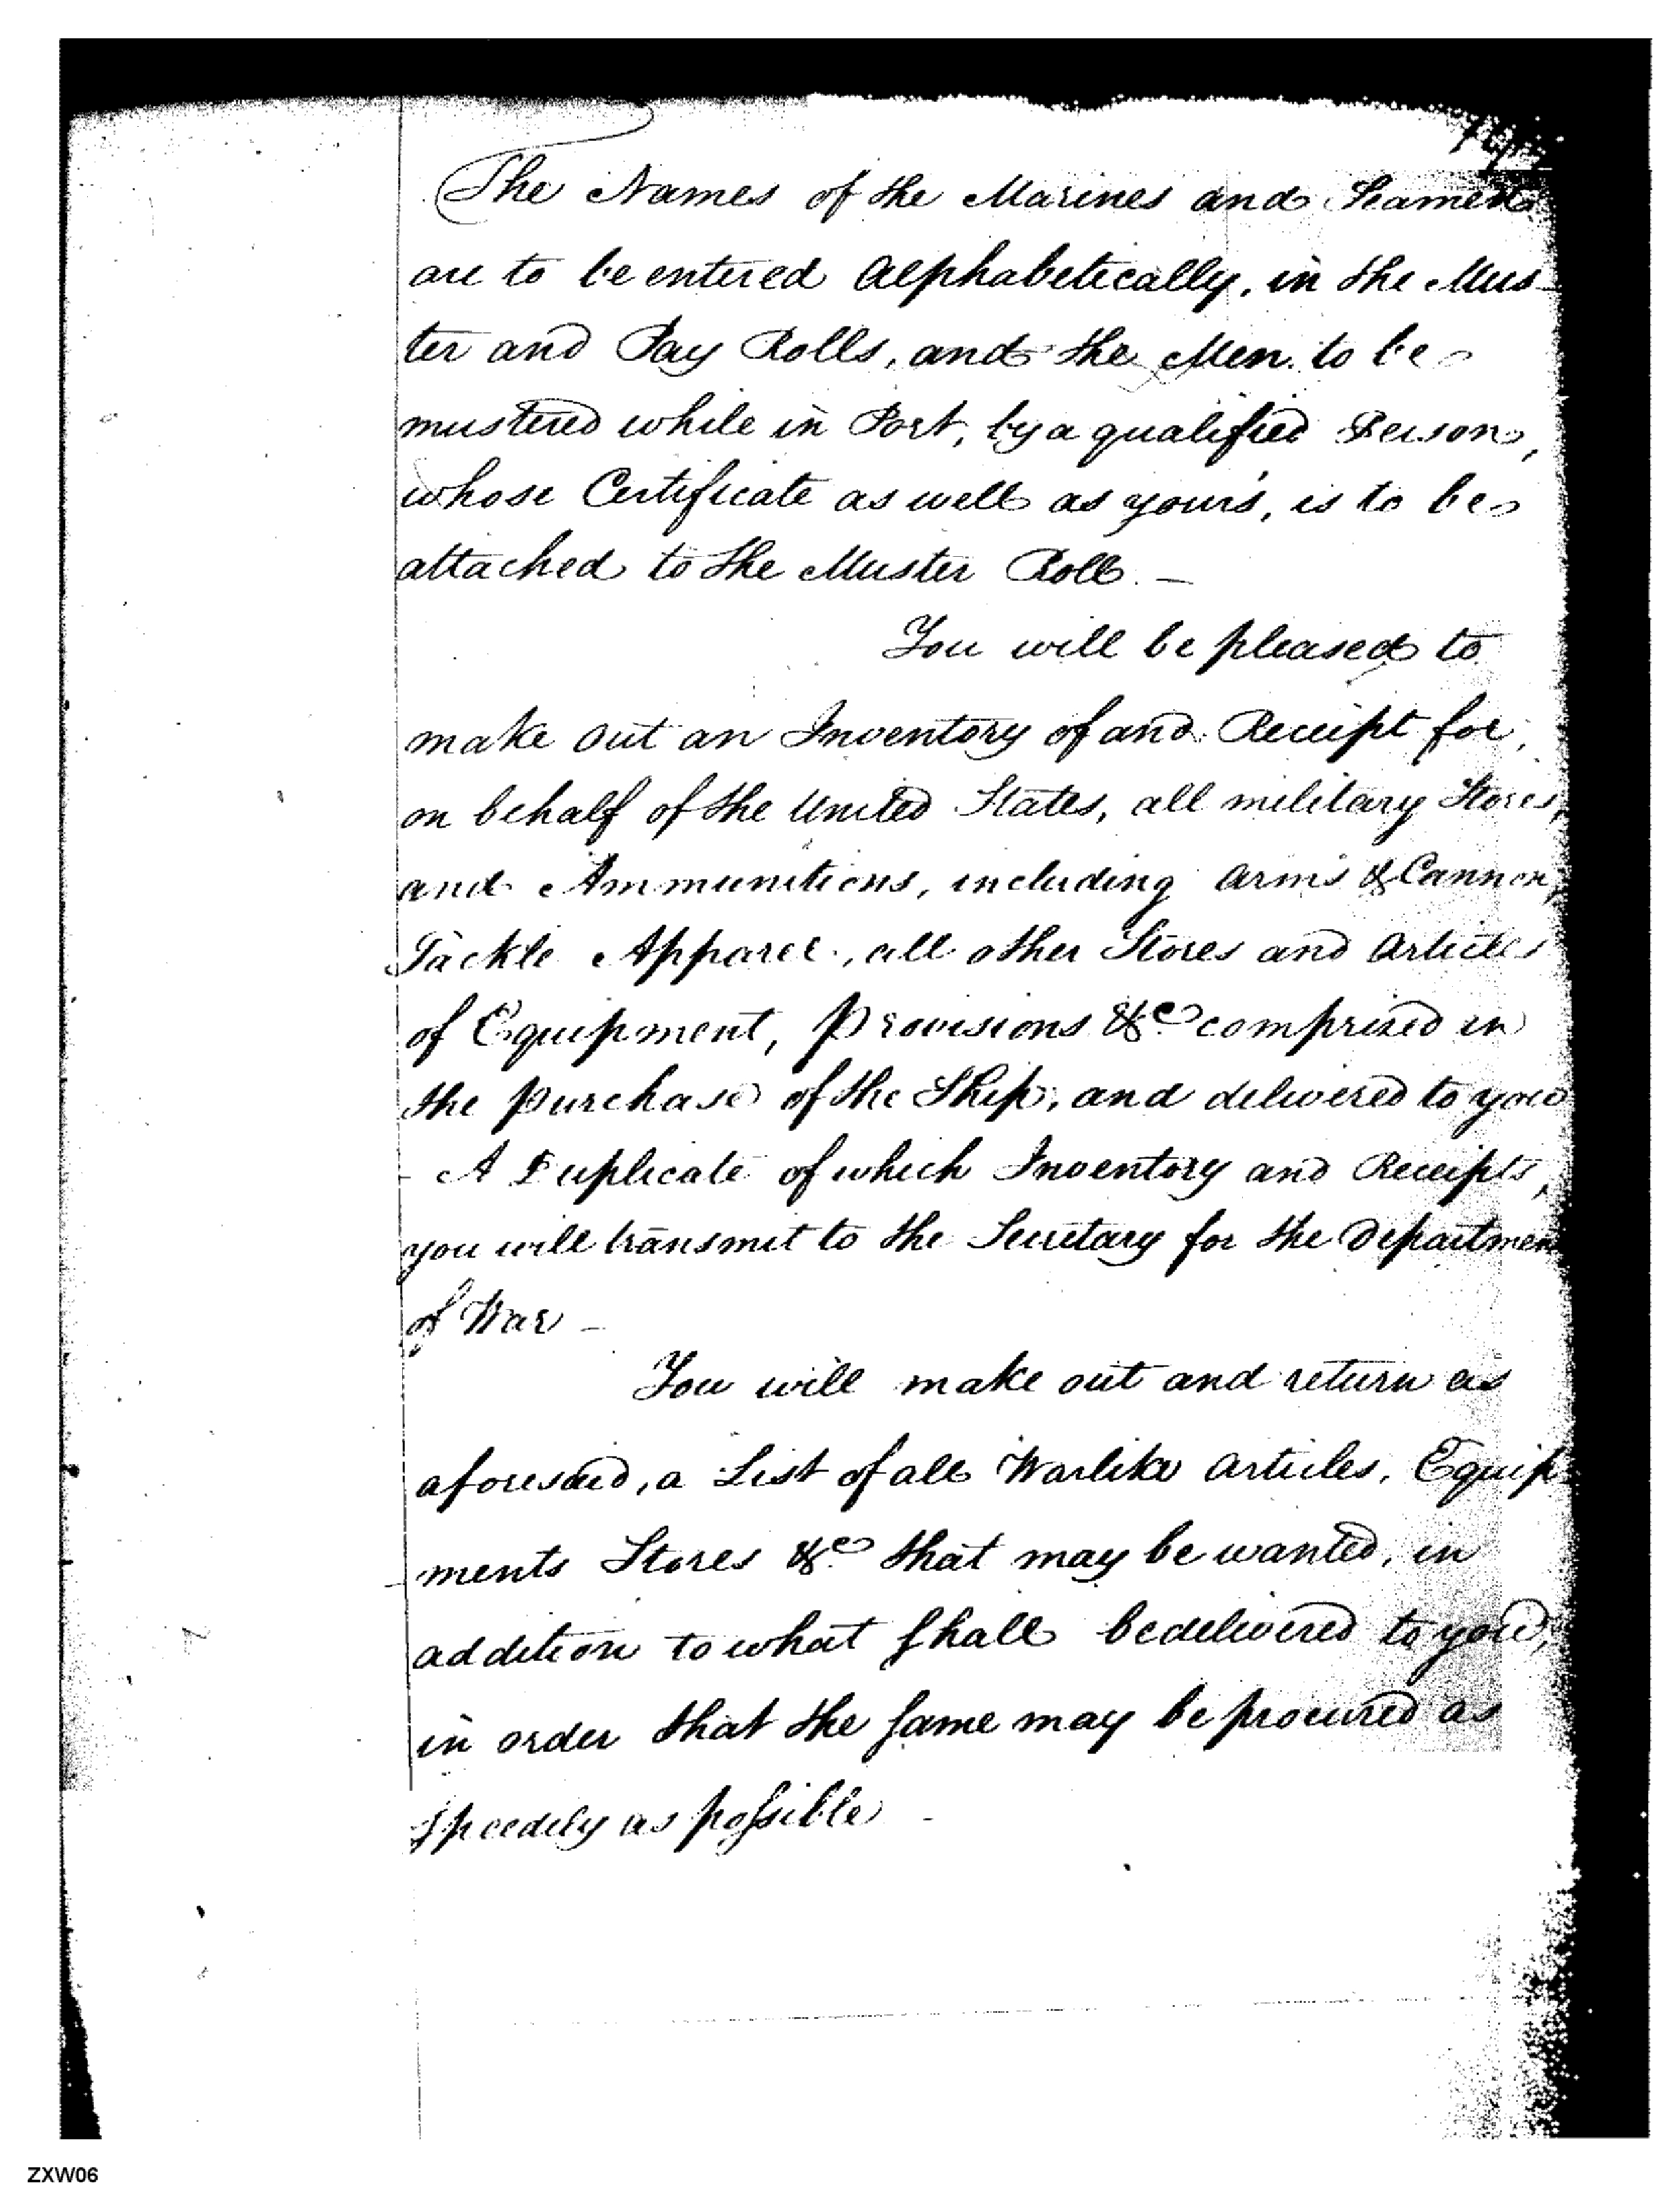 The Names of the Marines and Seamen
are to be entered Alphabetically, in the Mus-
ter and Pay Rolls, and the Men to be
mustered while in Port, by a qualified Person,
whose Certificate as well as your's, is to be
attached to the Muster Roll. —
You will be pleased to
make out an Inventory of and Receipt for,
on behalf of the United States, all military Stores,
and Ammunitions, including Arms & Cannon,
Tackle Apparel, all other Stores and Articles
of Equipment, Provisions &c comprised in
the purchase of the Ship, and delivered to you
- A Duplicate of which Inventory and Receipts,
you will transmit to the Secretary for the Departmen
of War —
You will make out and return as
aforesaid, a List of all Warlike Articles, Equip
ments Stores &c that may be wanted, in
addition to what shall be delivered to you,
in order that the same may be procured as
speedily as possible -
ZXW06